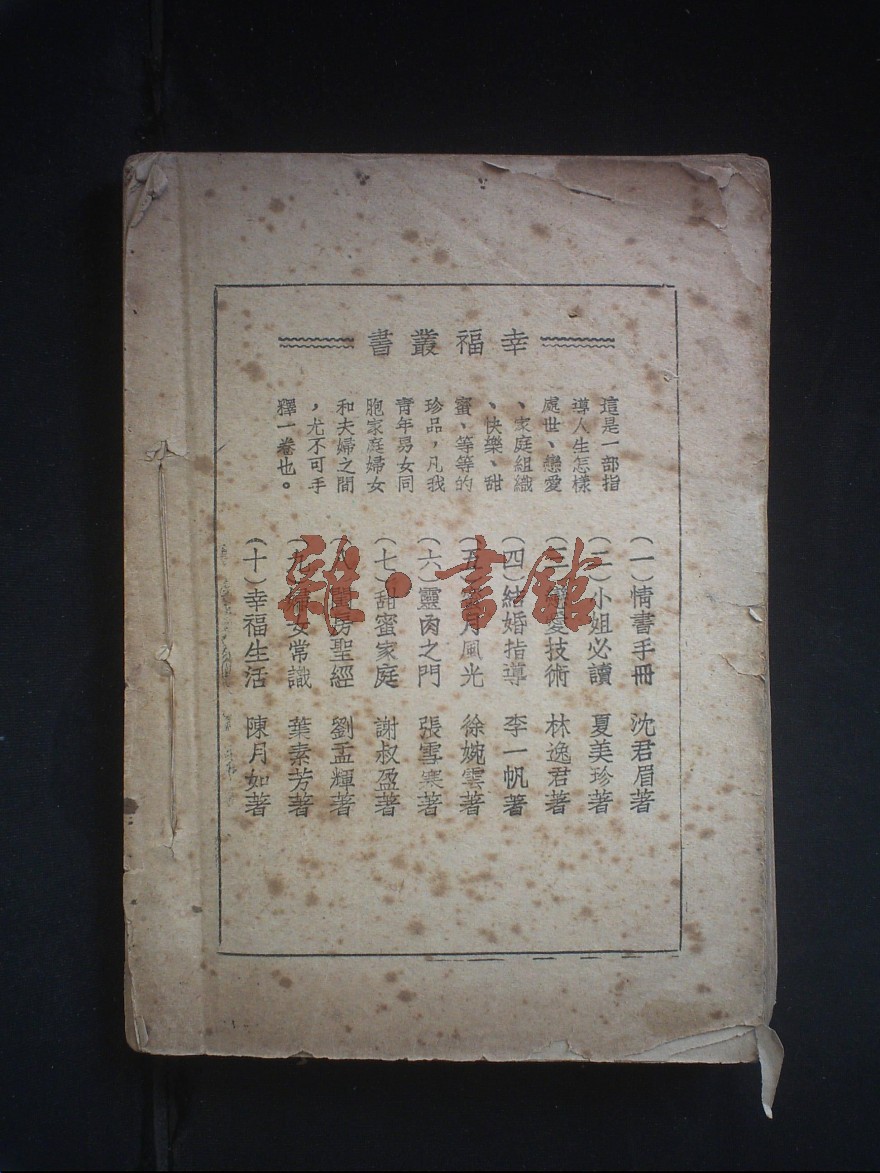 幸福叢書
這是一部指
導人生怎樣
處世、戀愛
、家庭組織
、快樂、甜
蜜、等等的
珍品，凡我
青年男女同
胞家庭婦女
和夫婦之間
，尤不可手
釋一卷也。
(一)情書手冊 沈君眉著
(二)小姐必讀 夏美珍著
(三)戀愛技術 林逸君著
(四)結婚指導 李一帆著
(五)蜜月風光 徐婉雲著
(六)靈肉之門 張雪寒著
(七)甜蜜家庭 謝叔盈著
(八)閨房聖經 劉孟輝著
(九)婦女常識 葉素芳著
(十)幸福生活 陳月如著
雜·書館